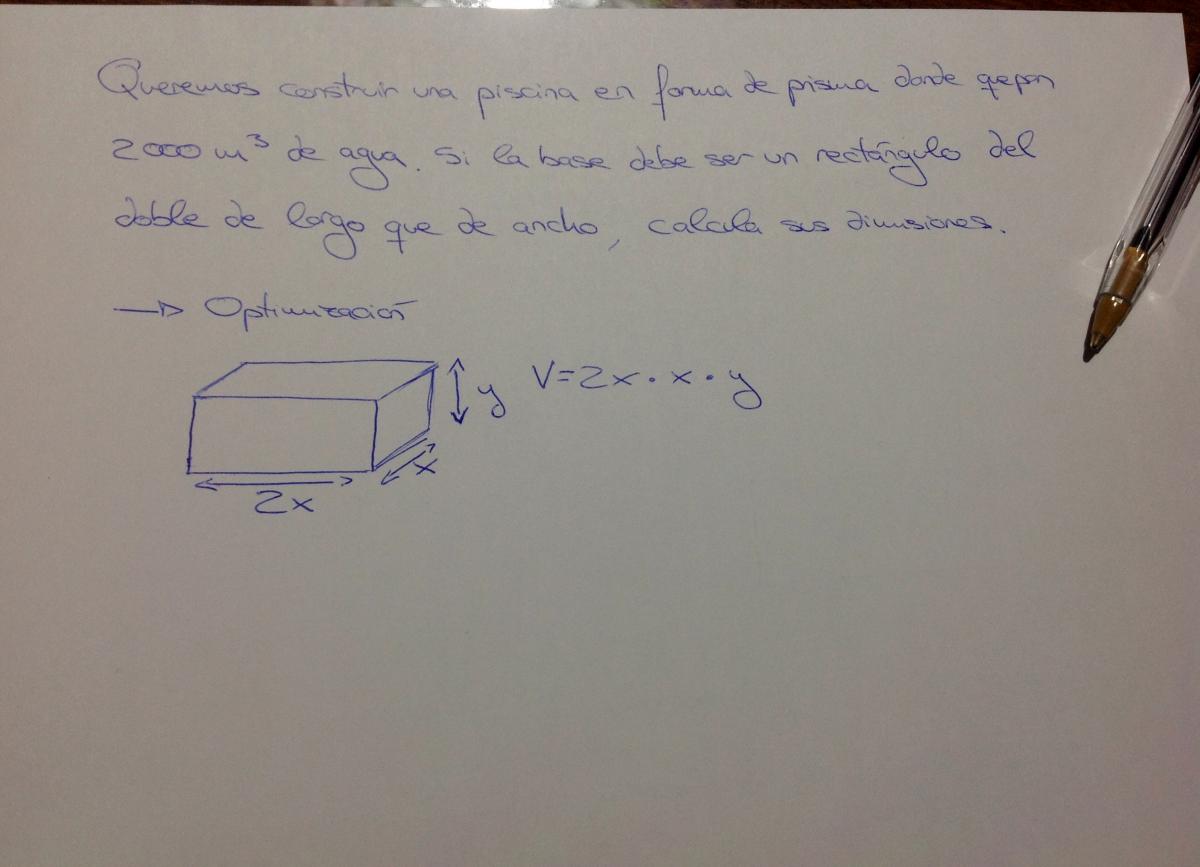 Queremos construir una piscina en forma de prisma donde quepan
2000 m³ de agua. Si la base debe ser un rectángulo del
doble de largo que de ancho, calcula sus dimensiones.
→ Optimización
V=2x·x·y
y
x
2x